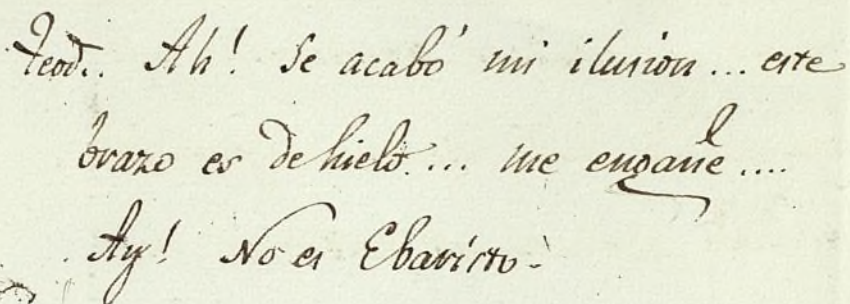 Teod.. Ah! Se acabó mi ilusion... este
brazo es de hielo.... me engañé....
Ay! No es Ebaristo.